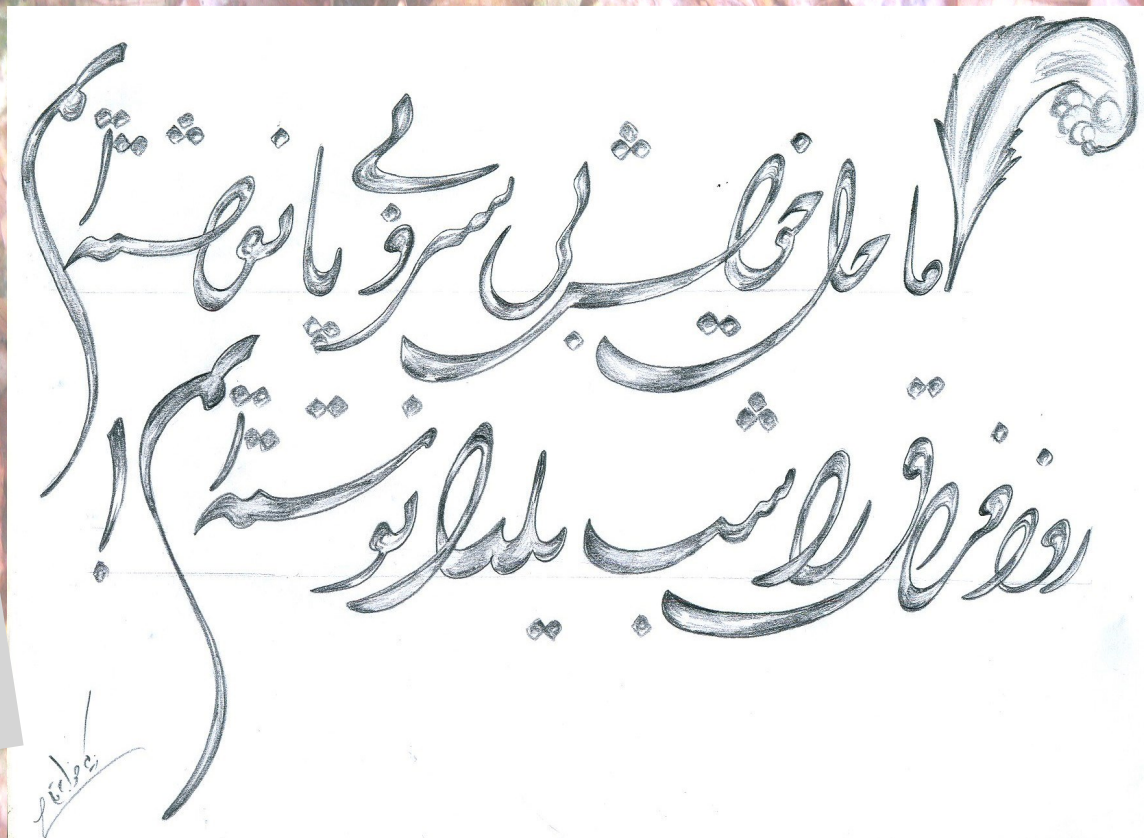 ما حال خویش بی سر و بی پا نوشته ایم
روز فراق را شب یلدا نوشته ایم !